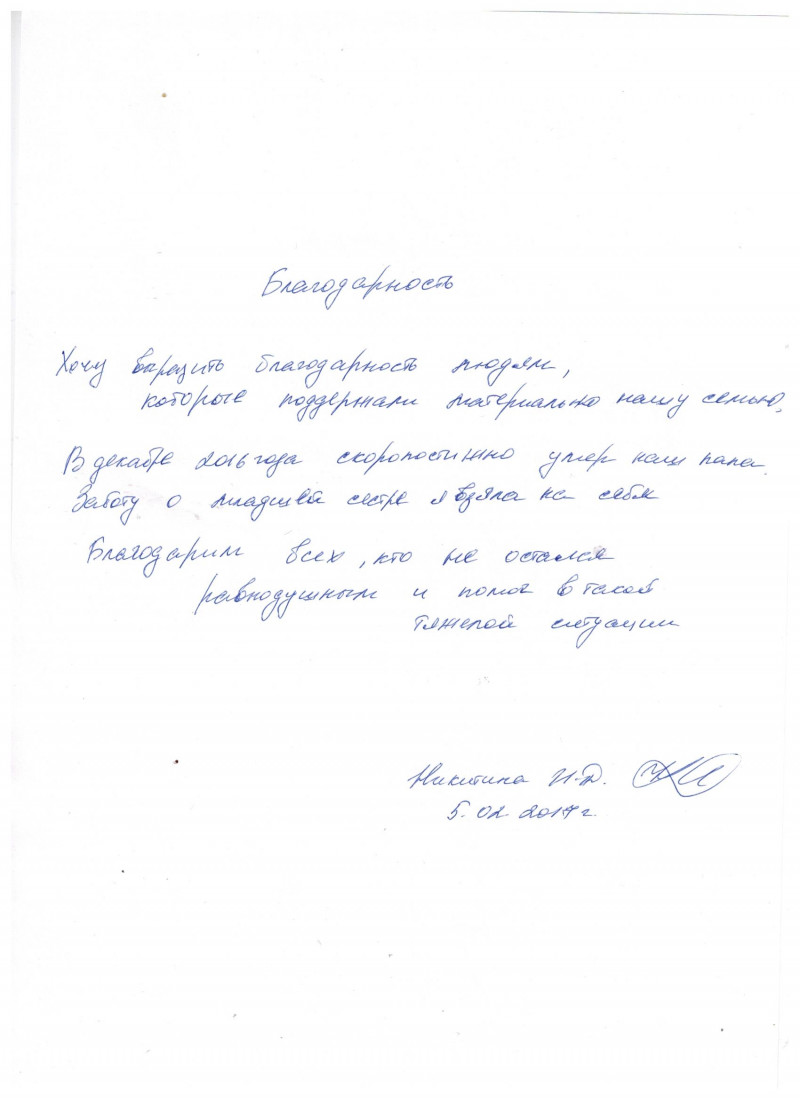 Благодарность
Хочу выразить благодарность людям,
которые поддержали материально нашу семью,
В декабре 2016 года скоропостижно умер наш папа.
Заботу о младшей сестре я взяла на себя
Благодарим всех, кто не остался
равнодушным и помог в такой
тяжелой ситуации
Никитина И.Д.
5.02 2017 г.